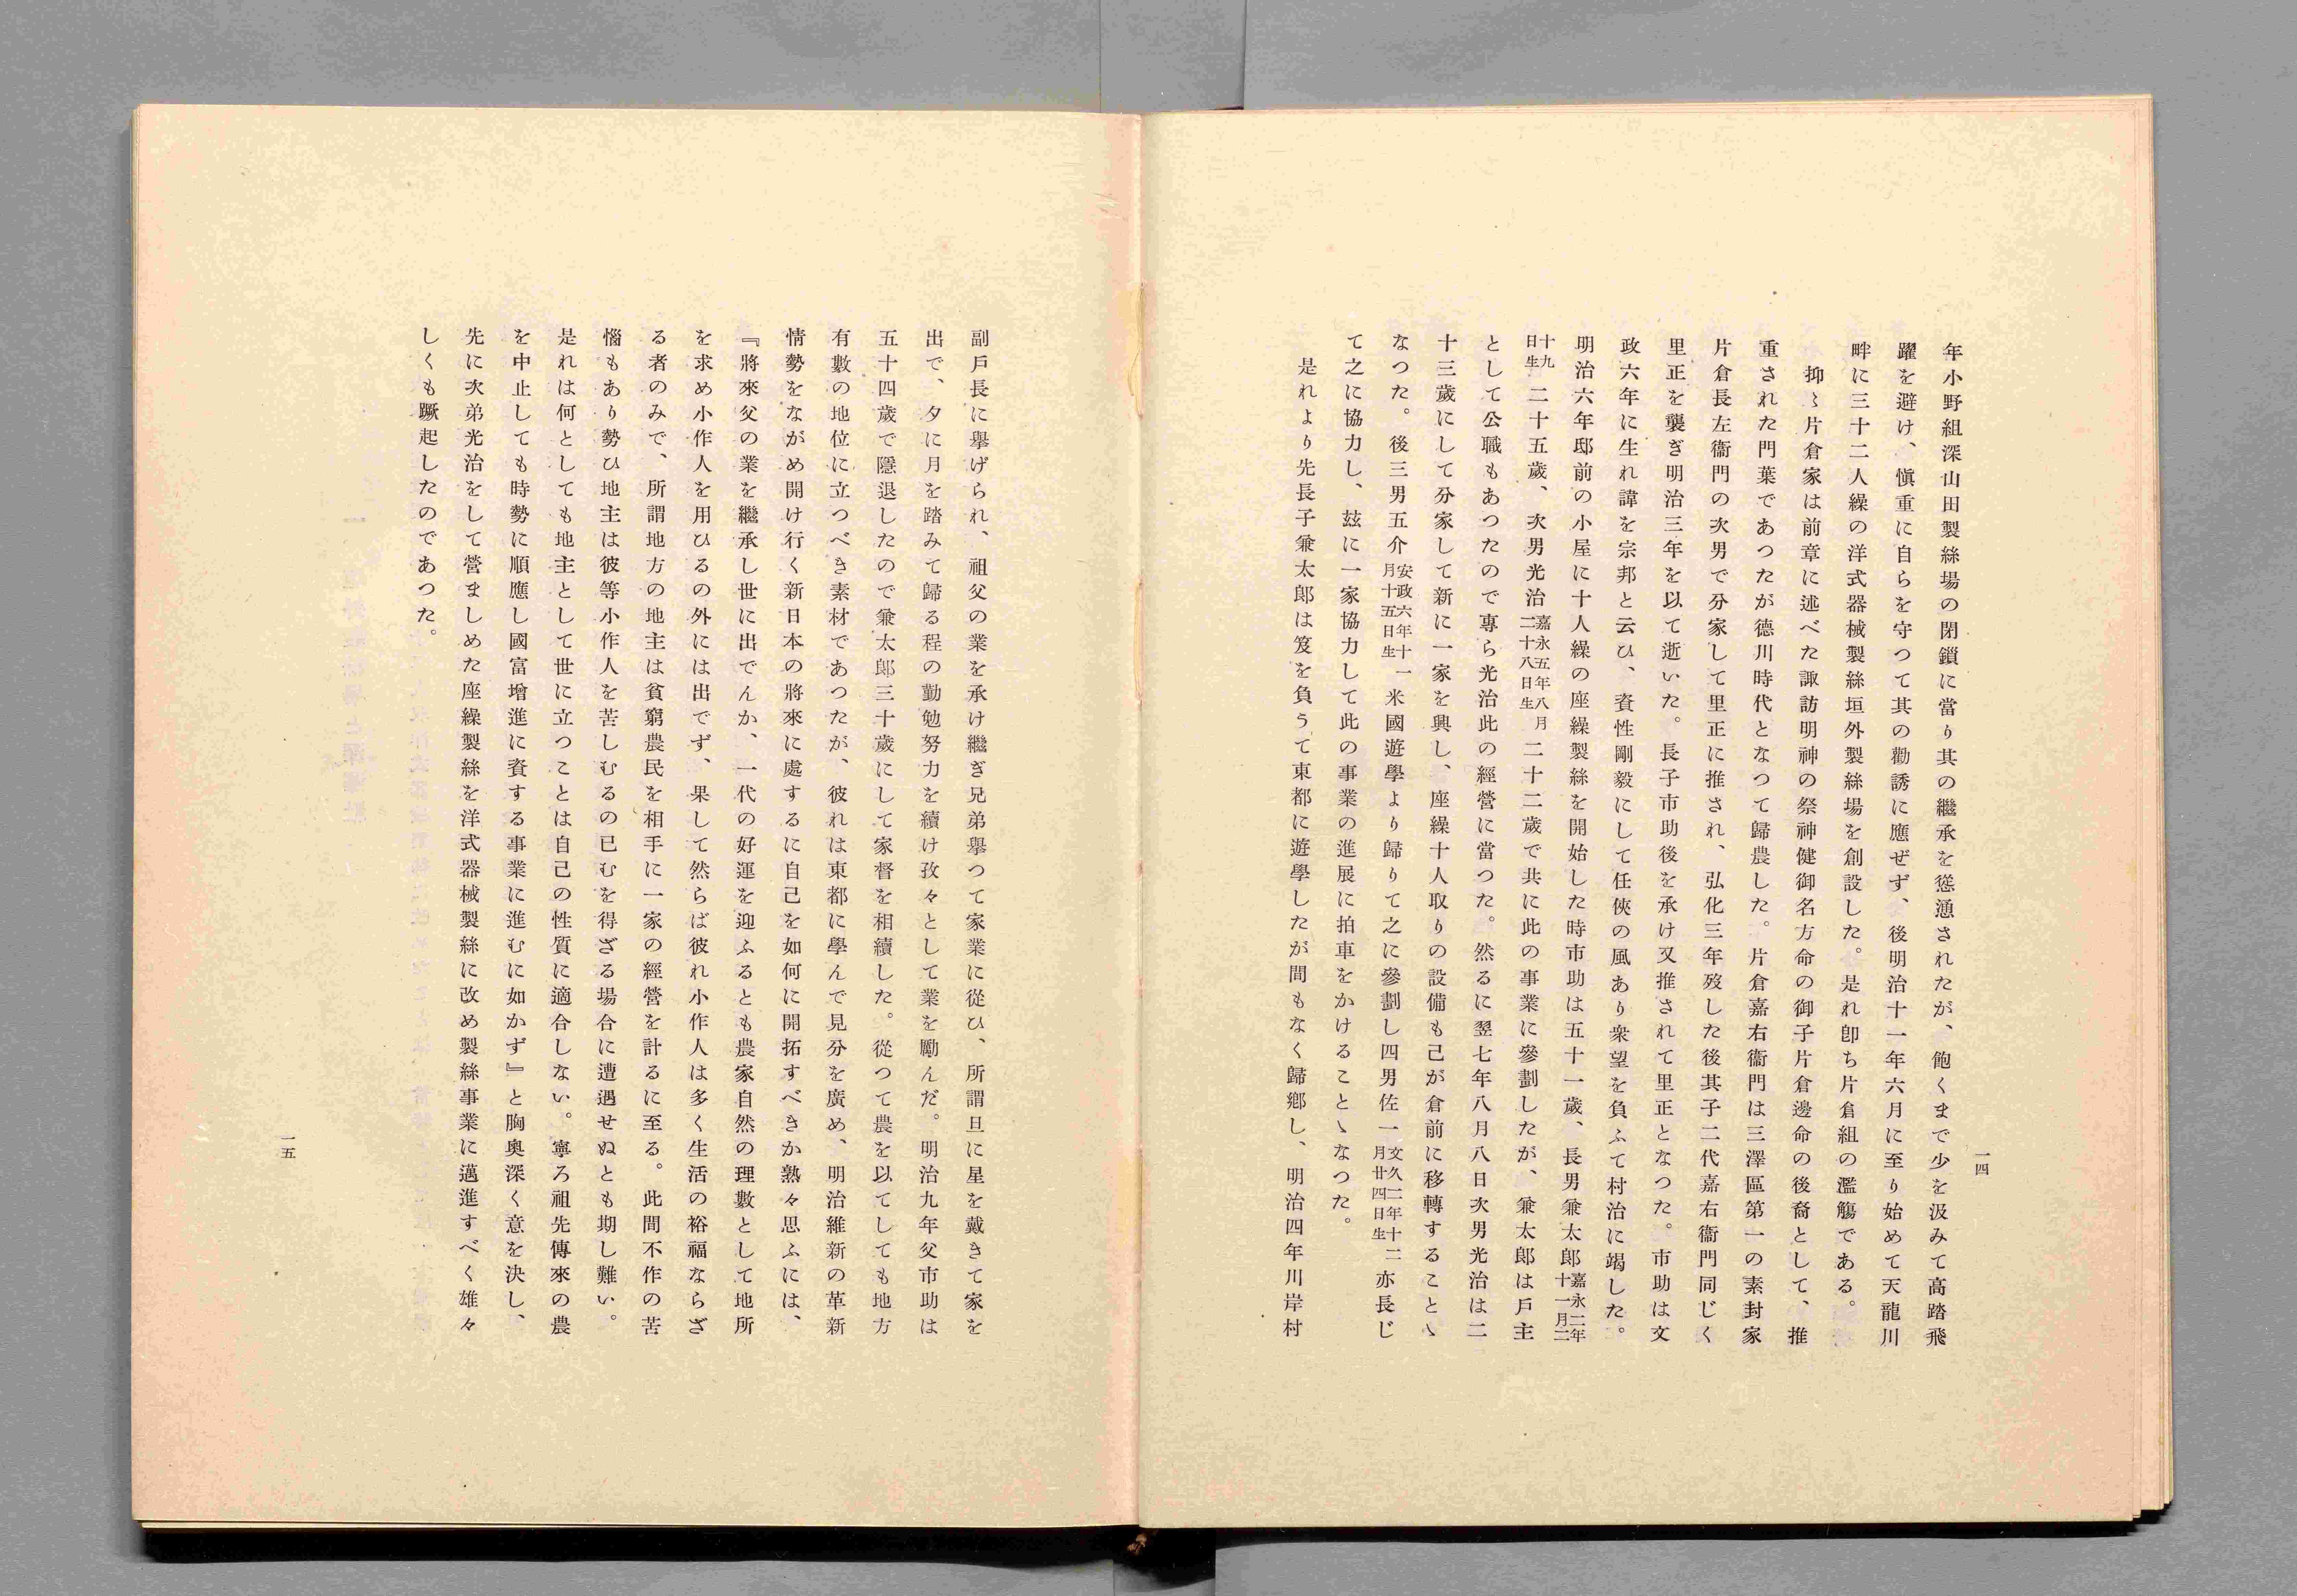 一四
年小野組深山田製絲場の閉鎖に當り其の繼承を慫慂されたが、飽くまで少を汲みて高踏飛
躍を避け、愼重に自らを守つて其の勸誘に應ぜず、後明治十一年六月に至り始めて天龍川
畔に三十二人繰の洋式器械製絲垣外製絲場を創設した。是れ卽ち片倉組の濫觴である。
抑〻片倉家は前章に述べた諏訪明神の祭神健御名方命の御子片倉邊命の後裔として、推
重された門葉であつたが德川時代となつて歸農した。片倉嘉右衞門は三澤區第一の素封家
片倉長左衞門の次男で分家して里正に推され、弘化三年歿した後其子二代嘉右衞門同じく
里正を襲ぎ明治三年を以て逝いた。長子市助後を承け又推されて里正となつた。市助は文
政六年に生れ諱を宗邦と云ひ、資性剛毅にして任俠の風あり衆望を負ふて村治に竭した。
明治六年邸前の小屋に十人繰の座繰製絲を開始した時市助は五十一歲、長男兼太郞嘉永二年十一月二
十九日生二十五歲、次男光治嘉永五年八月二十八日生二十二歲で共に此の事業に參劃したが、兼太郞は戶主
として公職もあつたので專ら光治此の經營に當つた。然るに翌七年八月八日次男光治は二
十三歲にして分家して新に一家を興し、座繰十人取りの設備も己が倉前に移轉することゝ
なつた。後三男五介安政六年十一月十五日生米國遊學より歸りて之に參劃し四男佐一文久二年十二月廿四日生亦長じ
て之に協力し、玆に一家協力して此の事業の進展に拍車をかけることゝなつた。
是れより先長子兼太郞は笈を負うて東都に遊學したが間もなく歸鄕し、明治四年川岸村
副戶長に擧げられ、祖父の業を承け繼ぎ兄弟擧つて家業に從ひ、所謂旦に星を戴きて家を
出で、夕に月を踏みて歸る程の勤勉努力を續け孜々として業を勵んだ。明治九年父市助は
五十四歲で隱退したので兼太郞三十歲にして家督を相續した。從つて農を以てしても地方
有數の地位に立つべき素材であつたが、彼れは東都に學んで見分を廣め、明治維新の革新
情勢をながめ開け行く新日本の將來に處するに自己を如何に開拓すべきか熟々思ふには、
『將來父の業を繼承し世に出でんか、一代の好運を迎ふるとも農家自然の理數として地所
を求め小作人を用ひるの外には出でず、果して然らば彼れ小作人は多く生活の裕福ならざ
る者のみで、所謂地方の地主は貧窮農民を相手に一家の經營を計るに至る。此間不作の苦
惱もあり勢ひ地主は彼等小作人を苦しむるの已むを得ざる場合に遭遇せぬとも期し難い。
是れは何としても地主として世に立つことは自己の性質に適合しない。寧ろ祖先傳來の農
を中止しても時勢に順應し國富增進に資する事業に進むに如かず』と胸奧深く意を決し、
先に次弟光治をして營ましめた座繰製絲を洋式器械製絲に改め製絲事業に邁進すべく雄々
しくも蹶起したのであつた。
一五